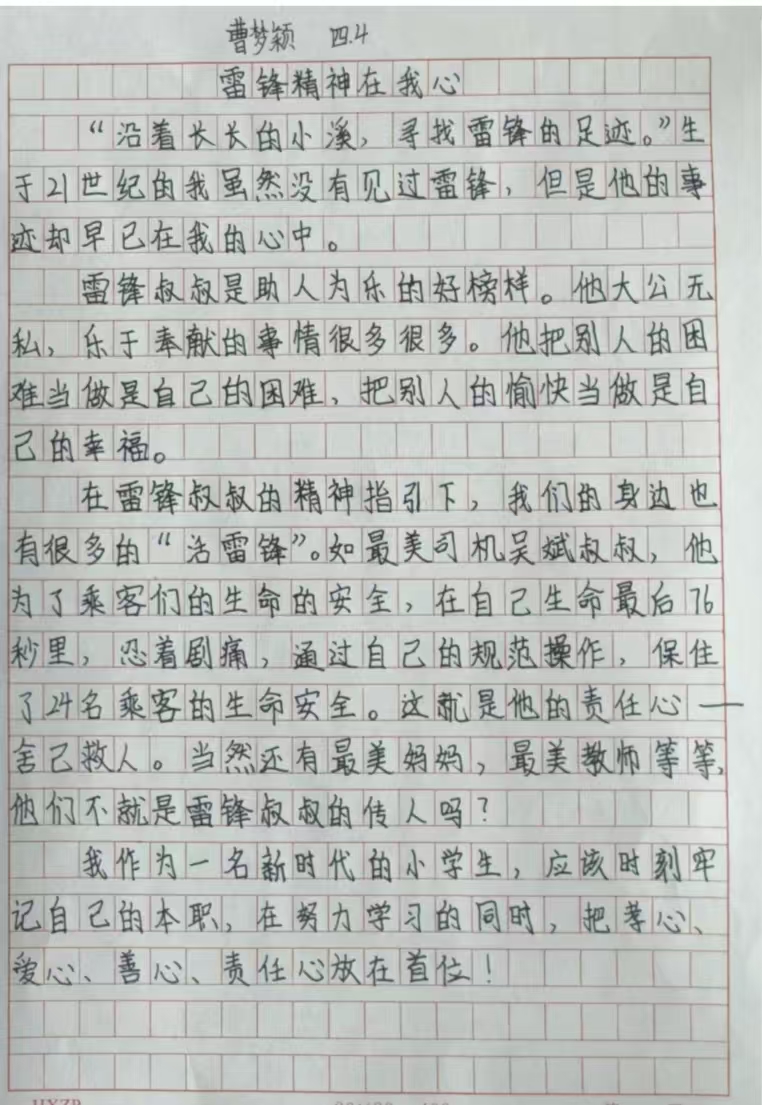 曹梦颖 四.4
雷锋精神在我心
“沿着长长的小溪，寻找雷锋的足迹。”生
于21世纪的我虽然没有见过雷锋，但是他的事
迹却早已在我的心中。
雷锋叔叔是助人为乐的好榜样。他大公无
私，乐于奉献的事情很多很多。他把别人的困
难当做是自己的困难，把别人的愉快当做是自
己的幸福。
在雷锋叔叔的精神指引下，我们的身边也
有很多的“活雷锋”。如最美司机吴斌叔叔，他
为了乘客们的生命的安全，在自己生命最后76
秒里，忍着剧痛，通过自己的规范操作，保住
了24名乘客的生命安全。这就是他的责任心——
舍己救人。当然还有最美妈妈，最美教师等等，
他们不就是雷锋叔叔的传人吗？
我作为一名新时代的小学生，应该时刻牢
记自己的本职，在努力学习的同时，把孝心、
爱心、善心、责任心放在首位！